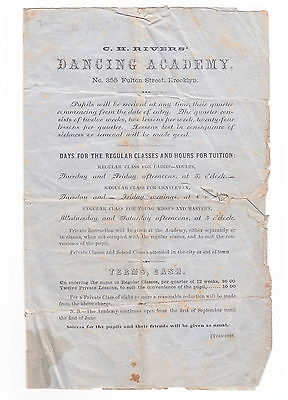 C. H. RIVERS'
DANCING ACADEMY,
No. 355 Fulton Street, Brooklyn.
Pupils will be received at any time, their quarter
commencing from the date of entry. The quarter con-
sists of twelve weeks, two lessons per week, twenty-four
lessons per quarter. Lessons lost in consequence of
sickness or removal will be made good.
DAYS FOR THE REGULAR CLASSES AND HOURS FOR TUITION:
REGULAR CLASS FOR LADIES—ADULTS,
Tuesday and Friday afternoons, at o'clock.
REGULAR CLASS FOR GENTLEMEN,
Tuesday and Friday evenings, at
REGULAR CLASS FOR YOUNG MISSES AND MASTERS,
Wednesday and Saturday afternoons, at o'clock.
Private Instruction will be given at the Academy, either separately or in
classes, when not occupied with the regular classes, and to suit the conveni-
ence of the pupil.
Private Classes and School Classes attended in the city or out of town.
TERMS, CASH.
On entering the name in Regular Classes, per quarter of 12 weeks, 00
Twelve Private Lessons, to suit the convenience of the pupil, 00
For a Private Class of eight or more a reasonable reduction will be made
from the above charge.
N. B.—The Academy continues open from the first of September until
the first of June.
Soirees for the pupils and their friends will be given as usual.